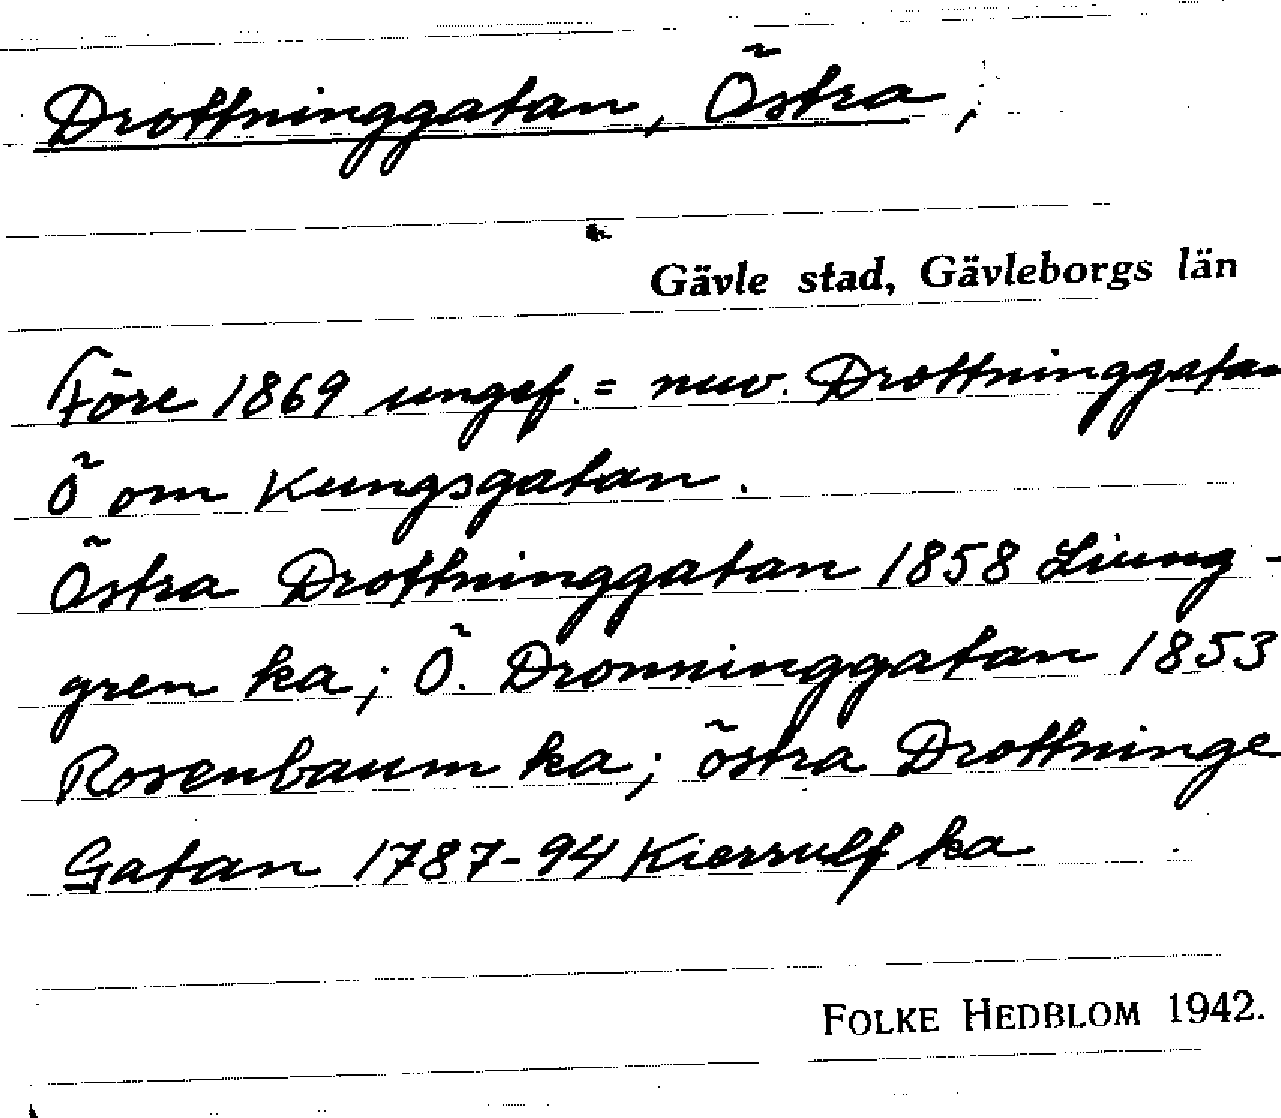 Drottninggatan, Östra,
Gävle stad, Gävleborgs län
Före 1869 ungef. = nuv. Drottninggatan
Ö om Kungsgatan.
Östra Drottninggatan 1858 Liung-
gren ka; Ö. Dronninggatan 1853
Rosenbaum ka; östra Drottninge
Gatan 1787-94 Kierrulf ka
FOLKE HEDBLOM 1942.